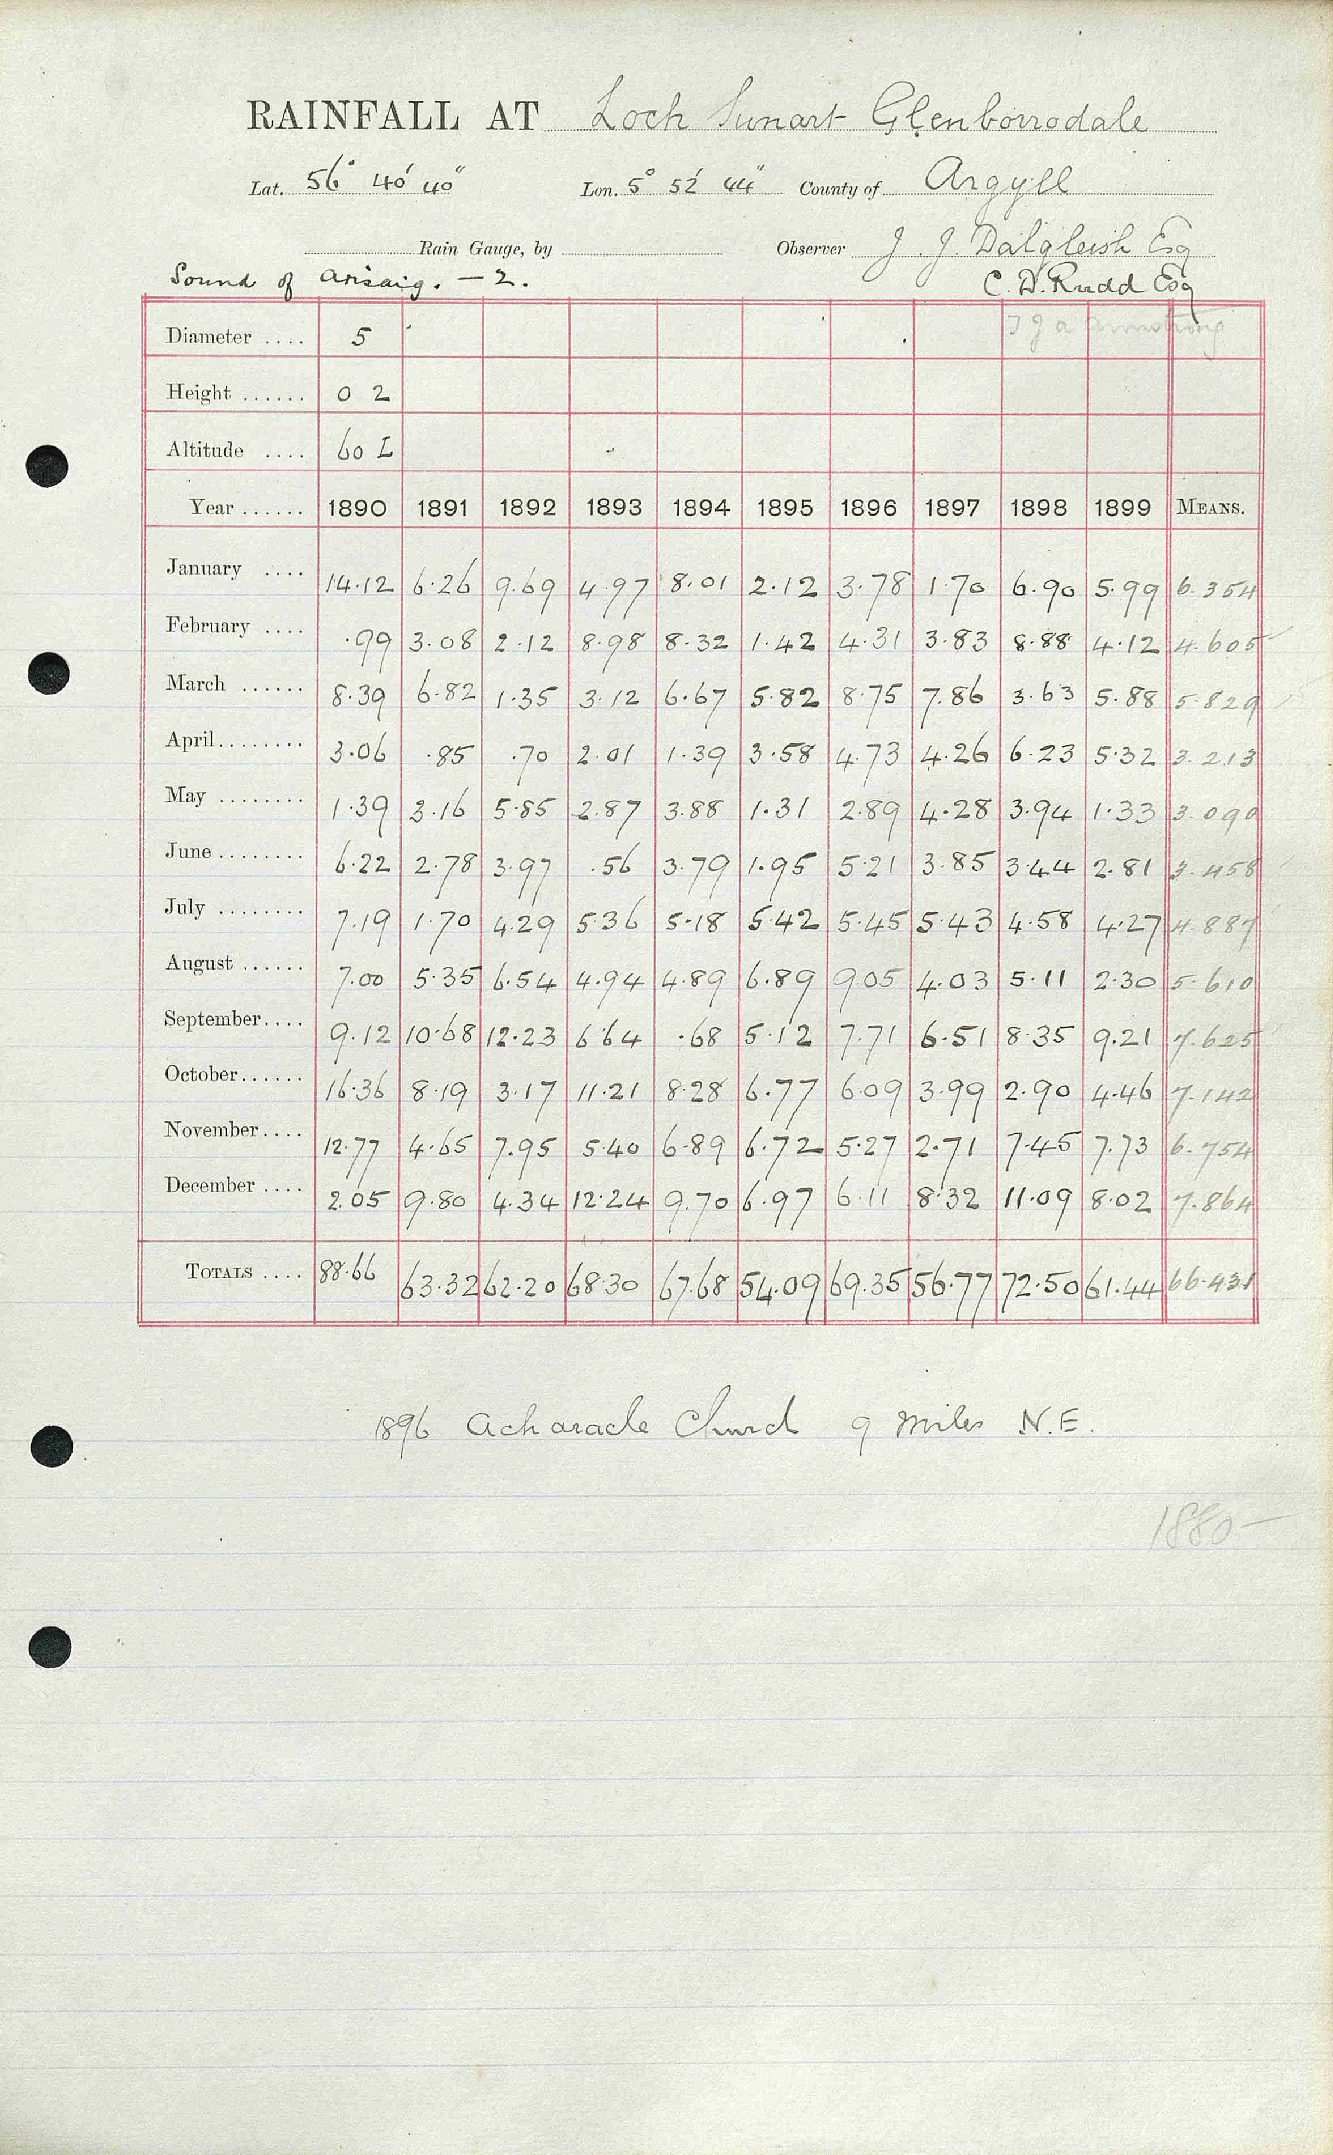 RAINFALL AT Loch Sunart Glenborrodale
Lat. 56° 40' 40" Lon. 5° 52' 44" County of Argyll
Rain Gauge, by Observer J. J. Dalgleish Esq
Sound of Arisaig. - 2. C. D. Rudd Esq
Armstrong
Diameter .... 5
Height ...... 0 2
Altitude .... 60 L
Year ...... 1890 1891 1892 1893 1894 1895 1896 1897 1898 1899 MEANS.
January .... 14.12 6.26 9.69 4.97 8.01 2.12 3.78 1.70 6.90 5.99 6.354
February .... .99 3.08 2.12 8.98 8.32 1.42 4.31 3.83 8.88 4.12 4.605
March ...... 8.39 6.82 1.35 3.12 6.67 5.82 8.75 7.86 3.63 5.88 5.829
April ........ 3.06 .85 .70 2.01 1.39 3.58 4.73 4.26 6.23 5.32 3.213
May ........ 1.39 3.16 5.85 2.87 3.88 1.31 2.89 4.28 3.94 1.33 3.090
June ........ 6.22 2.78 3.97 .56 3.79 1.95 5.21 3.85 3.44 2.81 3.458
July ........ 7.19 1.70 4.29 5.36 5.18 5.42 5.45 5.43 4.58 4.27 4.887
August ...... 7.00 5.35 6.54 4.94 4.89 6.89 9.05 4.03 5.11 2.30 5.610
September.... 9.12 10.68 12.23 6.64 .68 5.12 7.71 6.51 8.35 9.21 7.625
October...... 16.36 8.19 3.17 11.21 8.28 6.77 6.09 3.99 2.90 4.46 7.142
November.... 12.77 4.65 7.95 5.40 6.89 6.72 5.27 2.71 7.45 7.73 6.754
December .... 2.05 9.80 4.34 12.24 9.70 6.97 6.11 8.32 11.09 8.02 7.864
TOTALS .... 88.66 63.32 62.20 68.30 67.68 54.09 69.35 56.77 72.50 61.44 66.431
1896 Acharacle Church 9 Miles N.E.
1880-